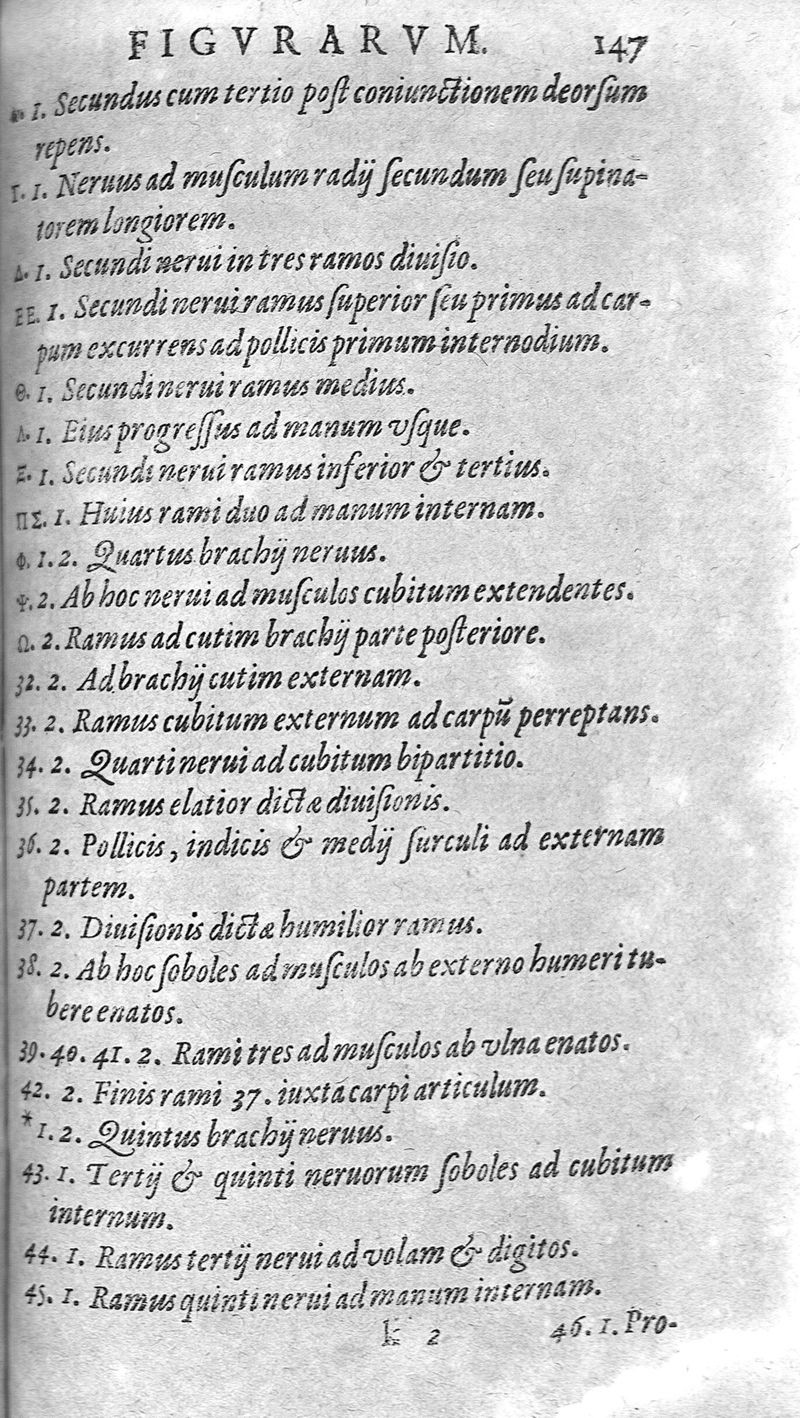 FIGVRARVM. 147
1. Secundus cum tertio poſt coniunctionem deorſum
repens.
Γ. 1. Neruus ad muſculum radij ſecundum ſeu ſupina-
torem longiorem.
Δ. 1. Secundi nerui in tres ramos diuiſio.
ΕΕ. 1. Secundi nerui ramus ſuperior ſeu primus ad car-
pum excurrens ad pollicis primum internodium.
Θ. 1. Secundi nerui ramus medius.
Λ. 1. Eius progreſſus ad manum vſque.
Ξ. 1. Secundi nerui ramus inferior & tertius.
ΠΣ. 1. Huius rami duo ad manum internam.
Φ. 1. 2. Quartus brachij neruus.
Ψ. 2. Ab hoc nerui ad muſculos cubitum extendentes.
Ω. 2. Ramus ad cutim brachij parte poſteriore.
32. 2. Ad brachij cutim externam.
33. 2. Ramus cubitum externum ad carpũ perreptans.
34. 2. Quarti nerui ad cubitum bipartitio.
35. 2. Ramus elatior dictæ diuiſionis.
36. 2. Pollicis, indicis & medij ſurculi ad externam
partem.
37. 2. Diuiſionis dictæ humilior ramus.
38. 2. Ab hoc ſoboles ad muſculos ab externo humeri tu-
bere enatos.
39. 40. 41. 2. Rami tres ad muſculos ab vlna enatos.
42. 2. Finis rami 37. iuxtá carpi articulum.
* 1. 2. Quintus brachij neruus.
43. 1. Tertij & quinti neruorum ſoboles ad cubitum
internum.
44. 1. Ramus tertij nerui ad volam & digitos.
45. 1. Ramus quinti nerui ad manum internam.
k 2 46. 1. Pro-